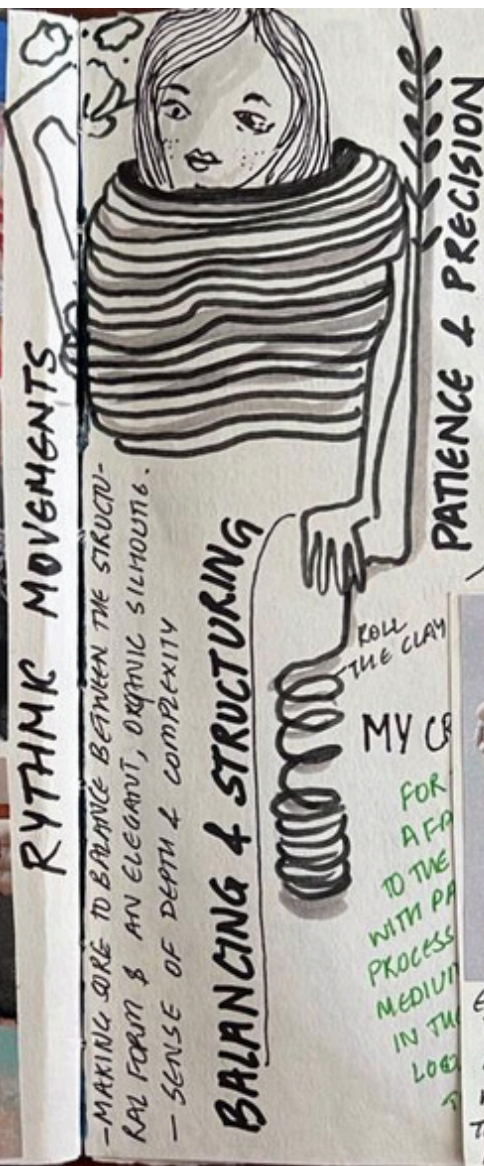 RYTHMIC MOVEMENTS
-MAKING SURE TO BALANCE BETWEEN THE STRUCTU-
RAL FORM & AN ELEGANT, ORGANIC SILHOUTTE.
- SENSE OF DEPTH & COMPLEXITY
BALANCING & STRUCTURING
PATIENCE & PRECISION
ROLL
THE CLAY
MY CR
FOR
A FA
TO THE
WITH PA
PROCESS
MEDIUM
IN THE